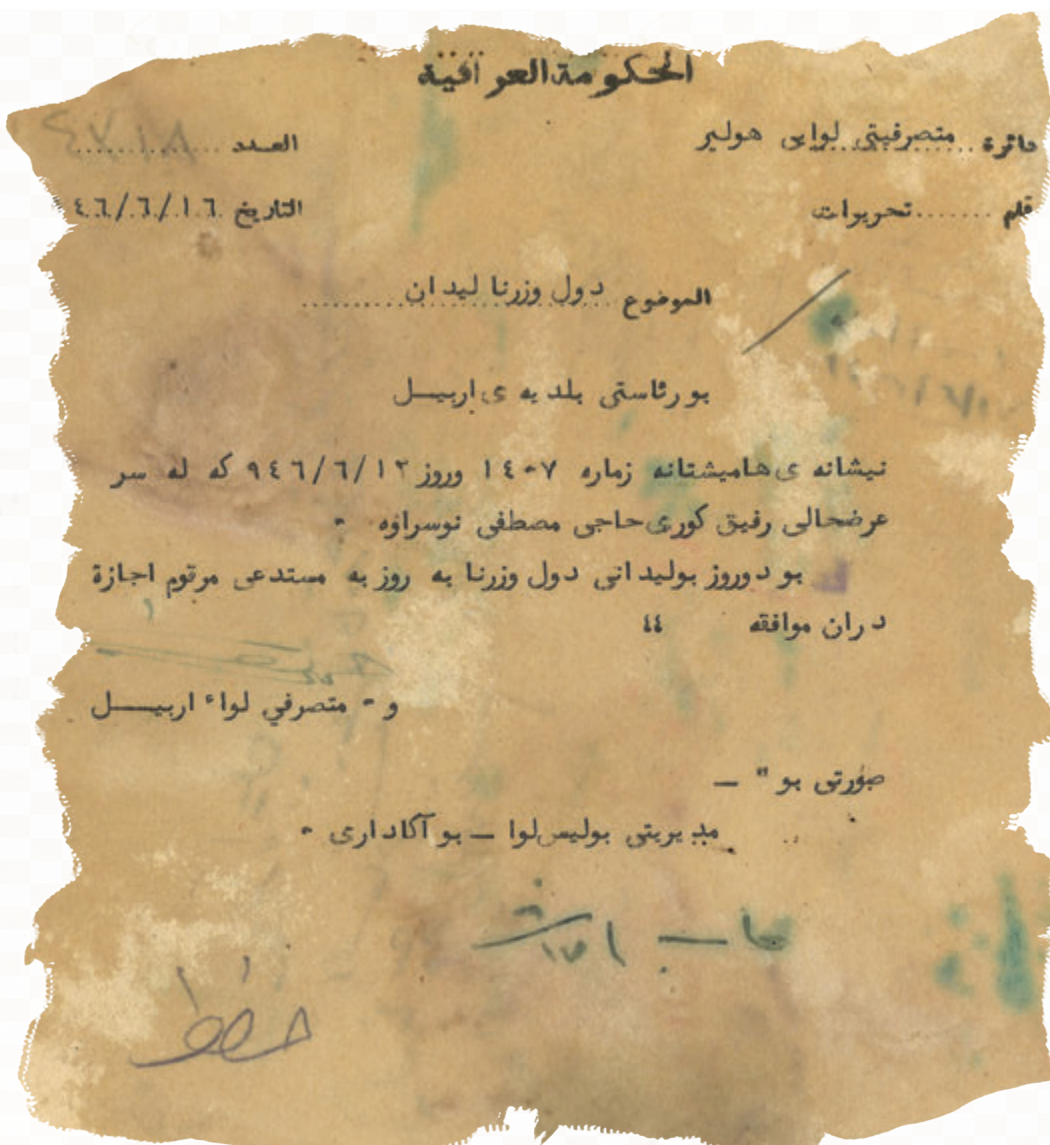 الحكومة العراقية
دائرة متصرفيتي لوايى هولير
العدد
قلم تحريرات
التاريخ ٤٦/٦/١٦
الموضوع دول وزرنا ليدان
بو رئاستى بلديه ى اربيــل
نيشانه ى هاميشتانه زماره ١٤٠٧ وروز ٩٤٦/٦/١٢ كه له سر
عرضحالى رفيق كورى حاجى مصطفى نوسراوه ٠
بو دوروز بوليدانى دول وزرنا به روز به مستدعى مرقوم اجازة
دران موافقه ٤٤
و٠ متصرفي لواء اربيـــل
صورتى بو " ـ
مديريتى بوليس لوا ــ بو آكادارى ٠
حفظ